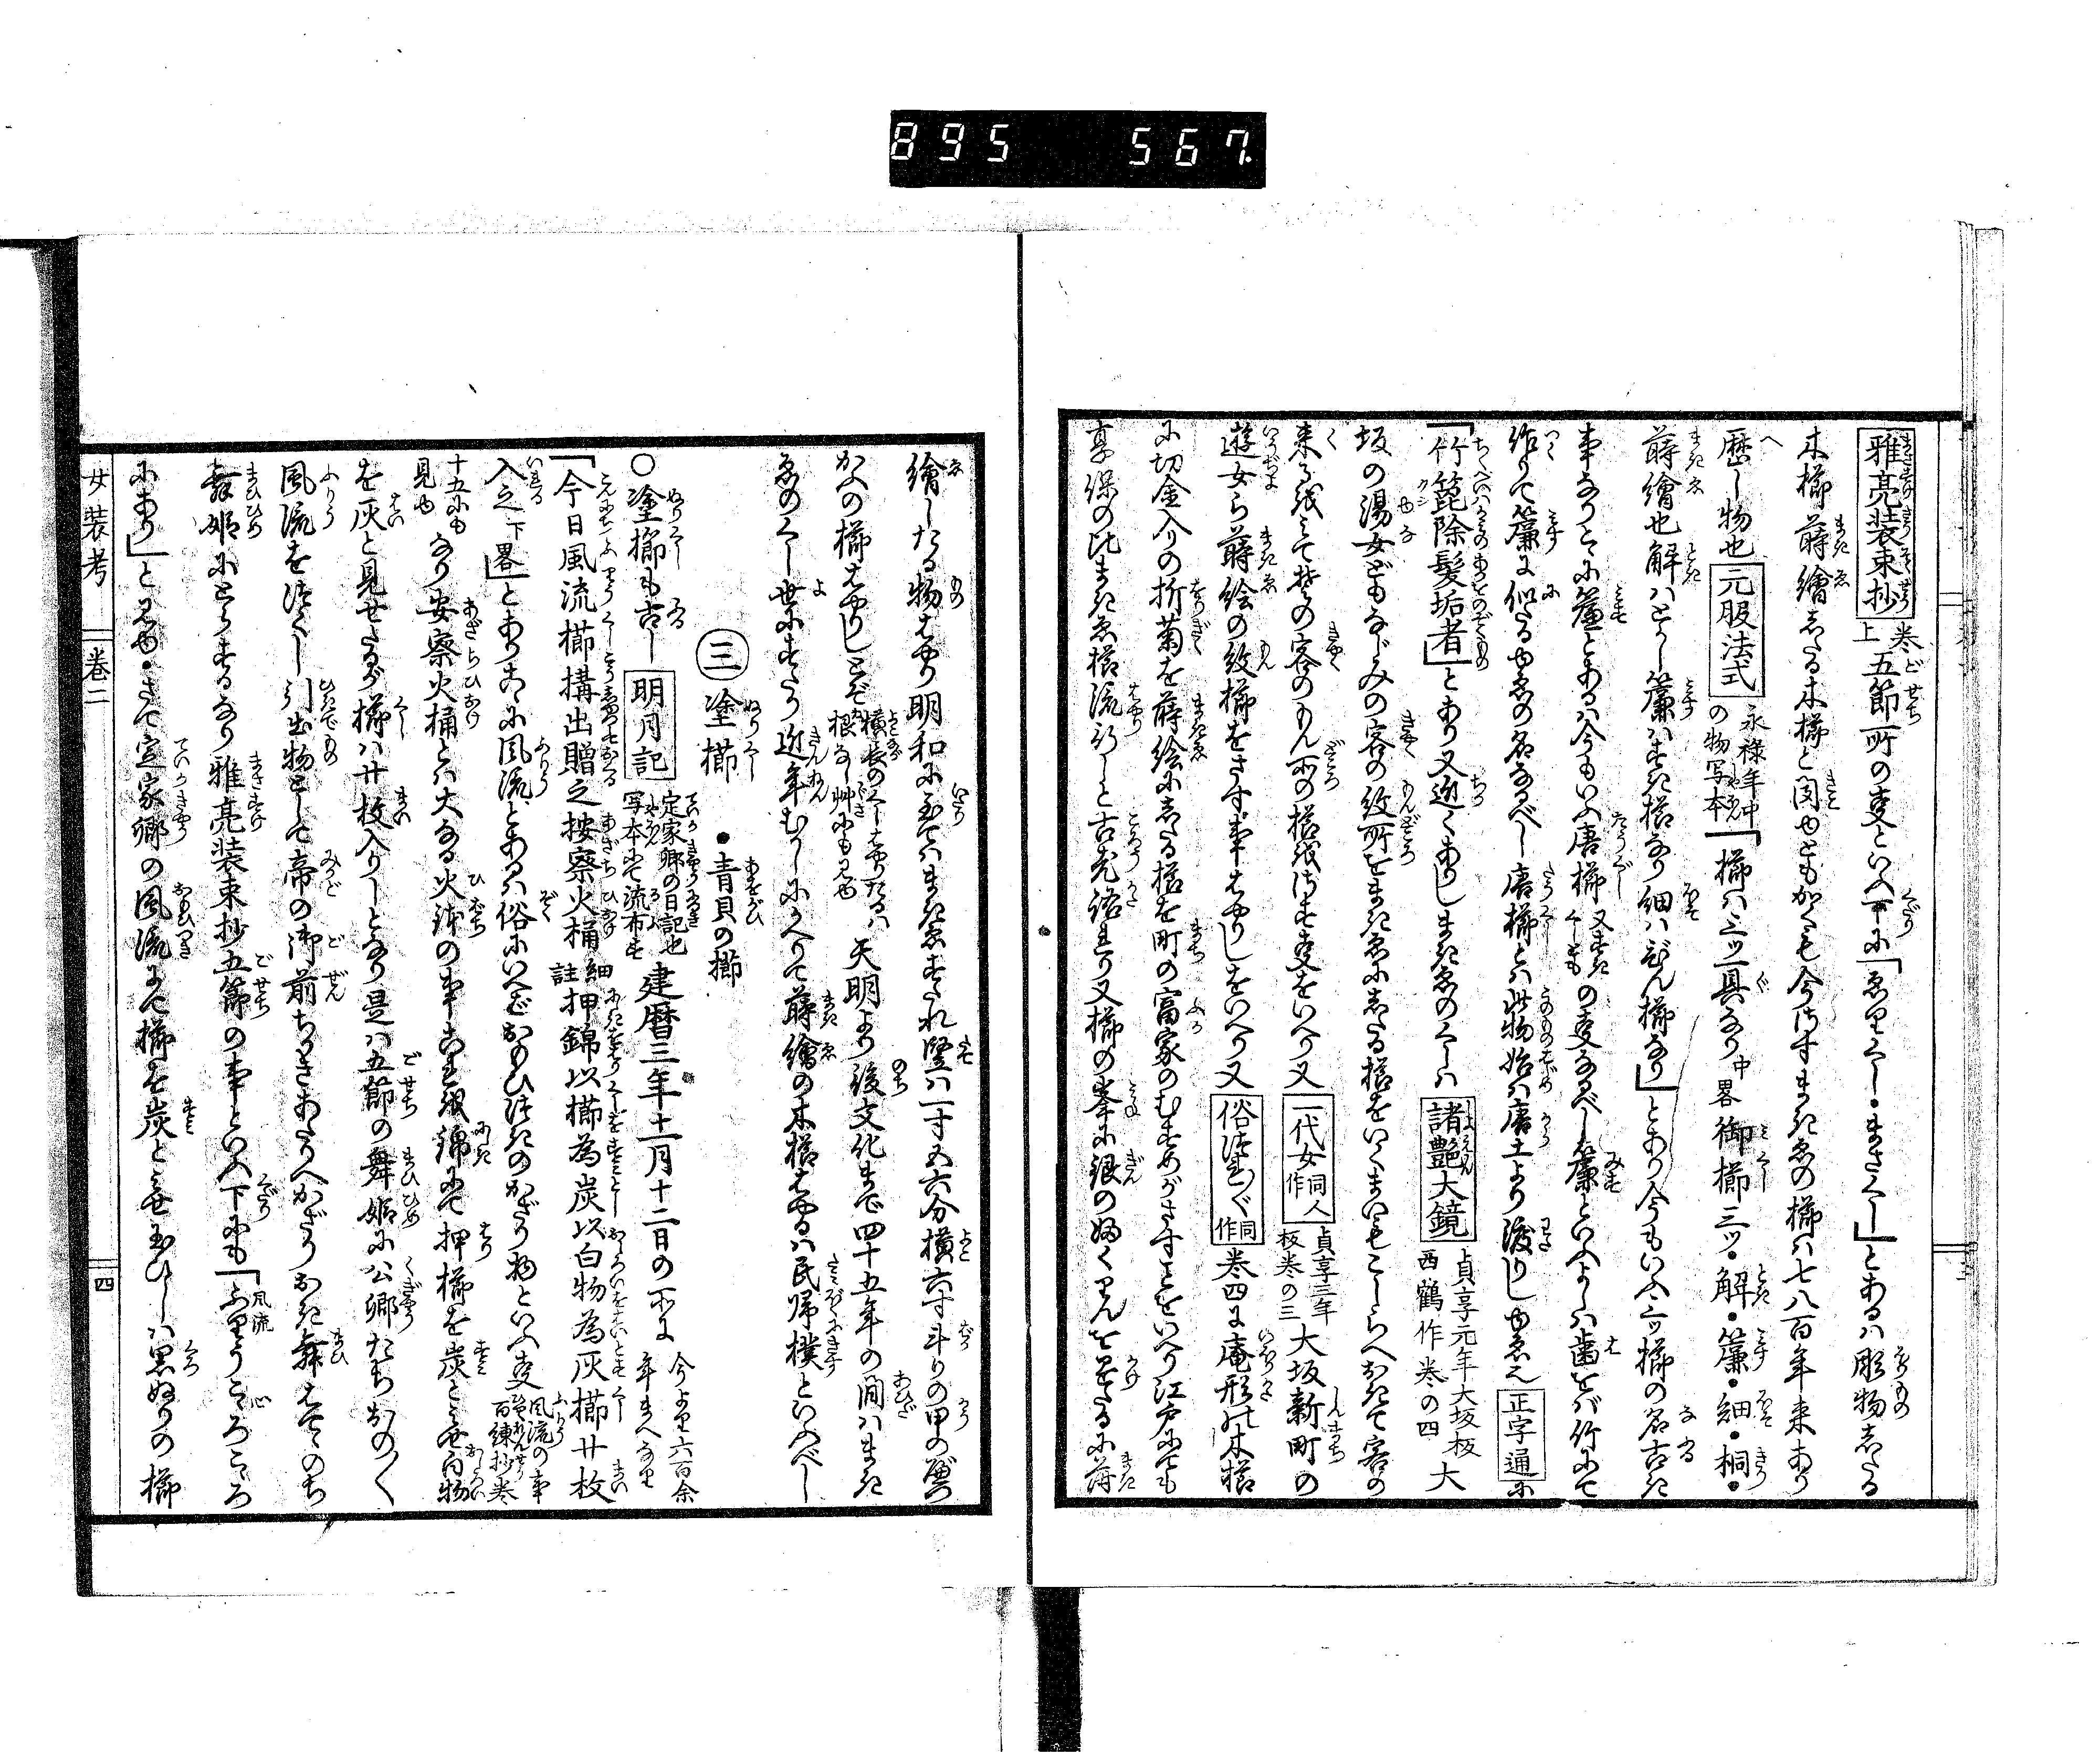 895 567
雅亮装束抄 巻上 五節所の事といへる下に「ゑりぐし・まきぐし」とあるは彫物したる
木櫛蒔繪したる木櫛と聞ゆともかくも今さすまきゑの櫛は七八百年来あり
歴し物也 元服法式 永禄年中の物写本「櫛は三ッ一具なり中畧御櫛三ッ・解・簾・細・桐・
蒔繪也解はとかし簾はすき櫛なり細はびん櫛なり」とあり今もいふ三ッ櫛の名古き
事なりこゝに簾とあるは今もいふ唐櫛又すきぐしもの事なるべし簾といふよしは歯をば竹にて
作りて簾に似たるゆゑの名なるべし唐櫛とは此物始は唐土より渡りしゆゑ也 正字通に
「竹箆除髪垢者」とあり又近くありしまきゑのくしは 諸艶大鏡 貞享元年大坂板西鶴作巻の四 大
坂の湯女どもなじみの客の紋所をまきゑにしたる櫛をいくまいもこしらへおきて客の
来る紋見てその客のもん所の櫛をさす事をいへり又 一代女 同人作 貞享三年板巻の三 大坂新町の
遊女ら蒔絵の紋櫛をさす事はやりしをいへり又 俗つれづれ 同作 巻四に庵形の木櫛
に切金入りの折菊を蒔絵にしたる櫛を町の富家のむすめがさすことをいへり江戸にても
享保の比まきゑ櫛流行しと古老語れり又櫛の峯に銀のふくりんをかけたるに蒔
繪したる物はやり明和に至てはまきゑすたれ竪は一寸五六分横六寸斗りの甲の薄
かふの櫛はやりしとぞ横長のくしはやりたるは根なし艸にも見ゆ 天明より後文化まで四十五年の間はまき
ゑのくし世にすたり近年むかしにかへりて蒔繪の木櫛はやるは民帰樸といふべし
三 塗櫛 ・青貝の櫛
○塗櫛も古し 明月記 定家卿の日記也写本にて流布す 建暦三年十一月十二日の所に今より六百余年まへなり
「今日風流櫛搆出贈之按察火桶細註押錦以櫛為炭以白物為灰櫛廿枚
入之下畧」とありこゝに風流とあるは俗にいへばおもひつきのかざり物といふ事 風流の事百練抄巻
十五にも見ゆ なり安察火桶とは大なる火鉢の事也これを錦にて押櫛を炭と見せ白物
を灰と見せたるが櫛は廿枚入りしとなり是は五節の舞姫に公卿たちおの〱
風流をつくし引出物として帝の御前ちかきあたりへかざりおき舞はてゝのち
舞姫にとらするなり雅亮装束抄五節の事といふ下にも「ふりう風流こゝろ心ごゝろ
にあり」と見ゆ・さて定家卿の風流にて櫛を炭と見せ玉ひしは黒ぬりの櫛
女装考 巻二 四